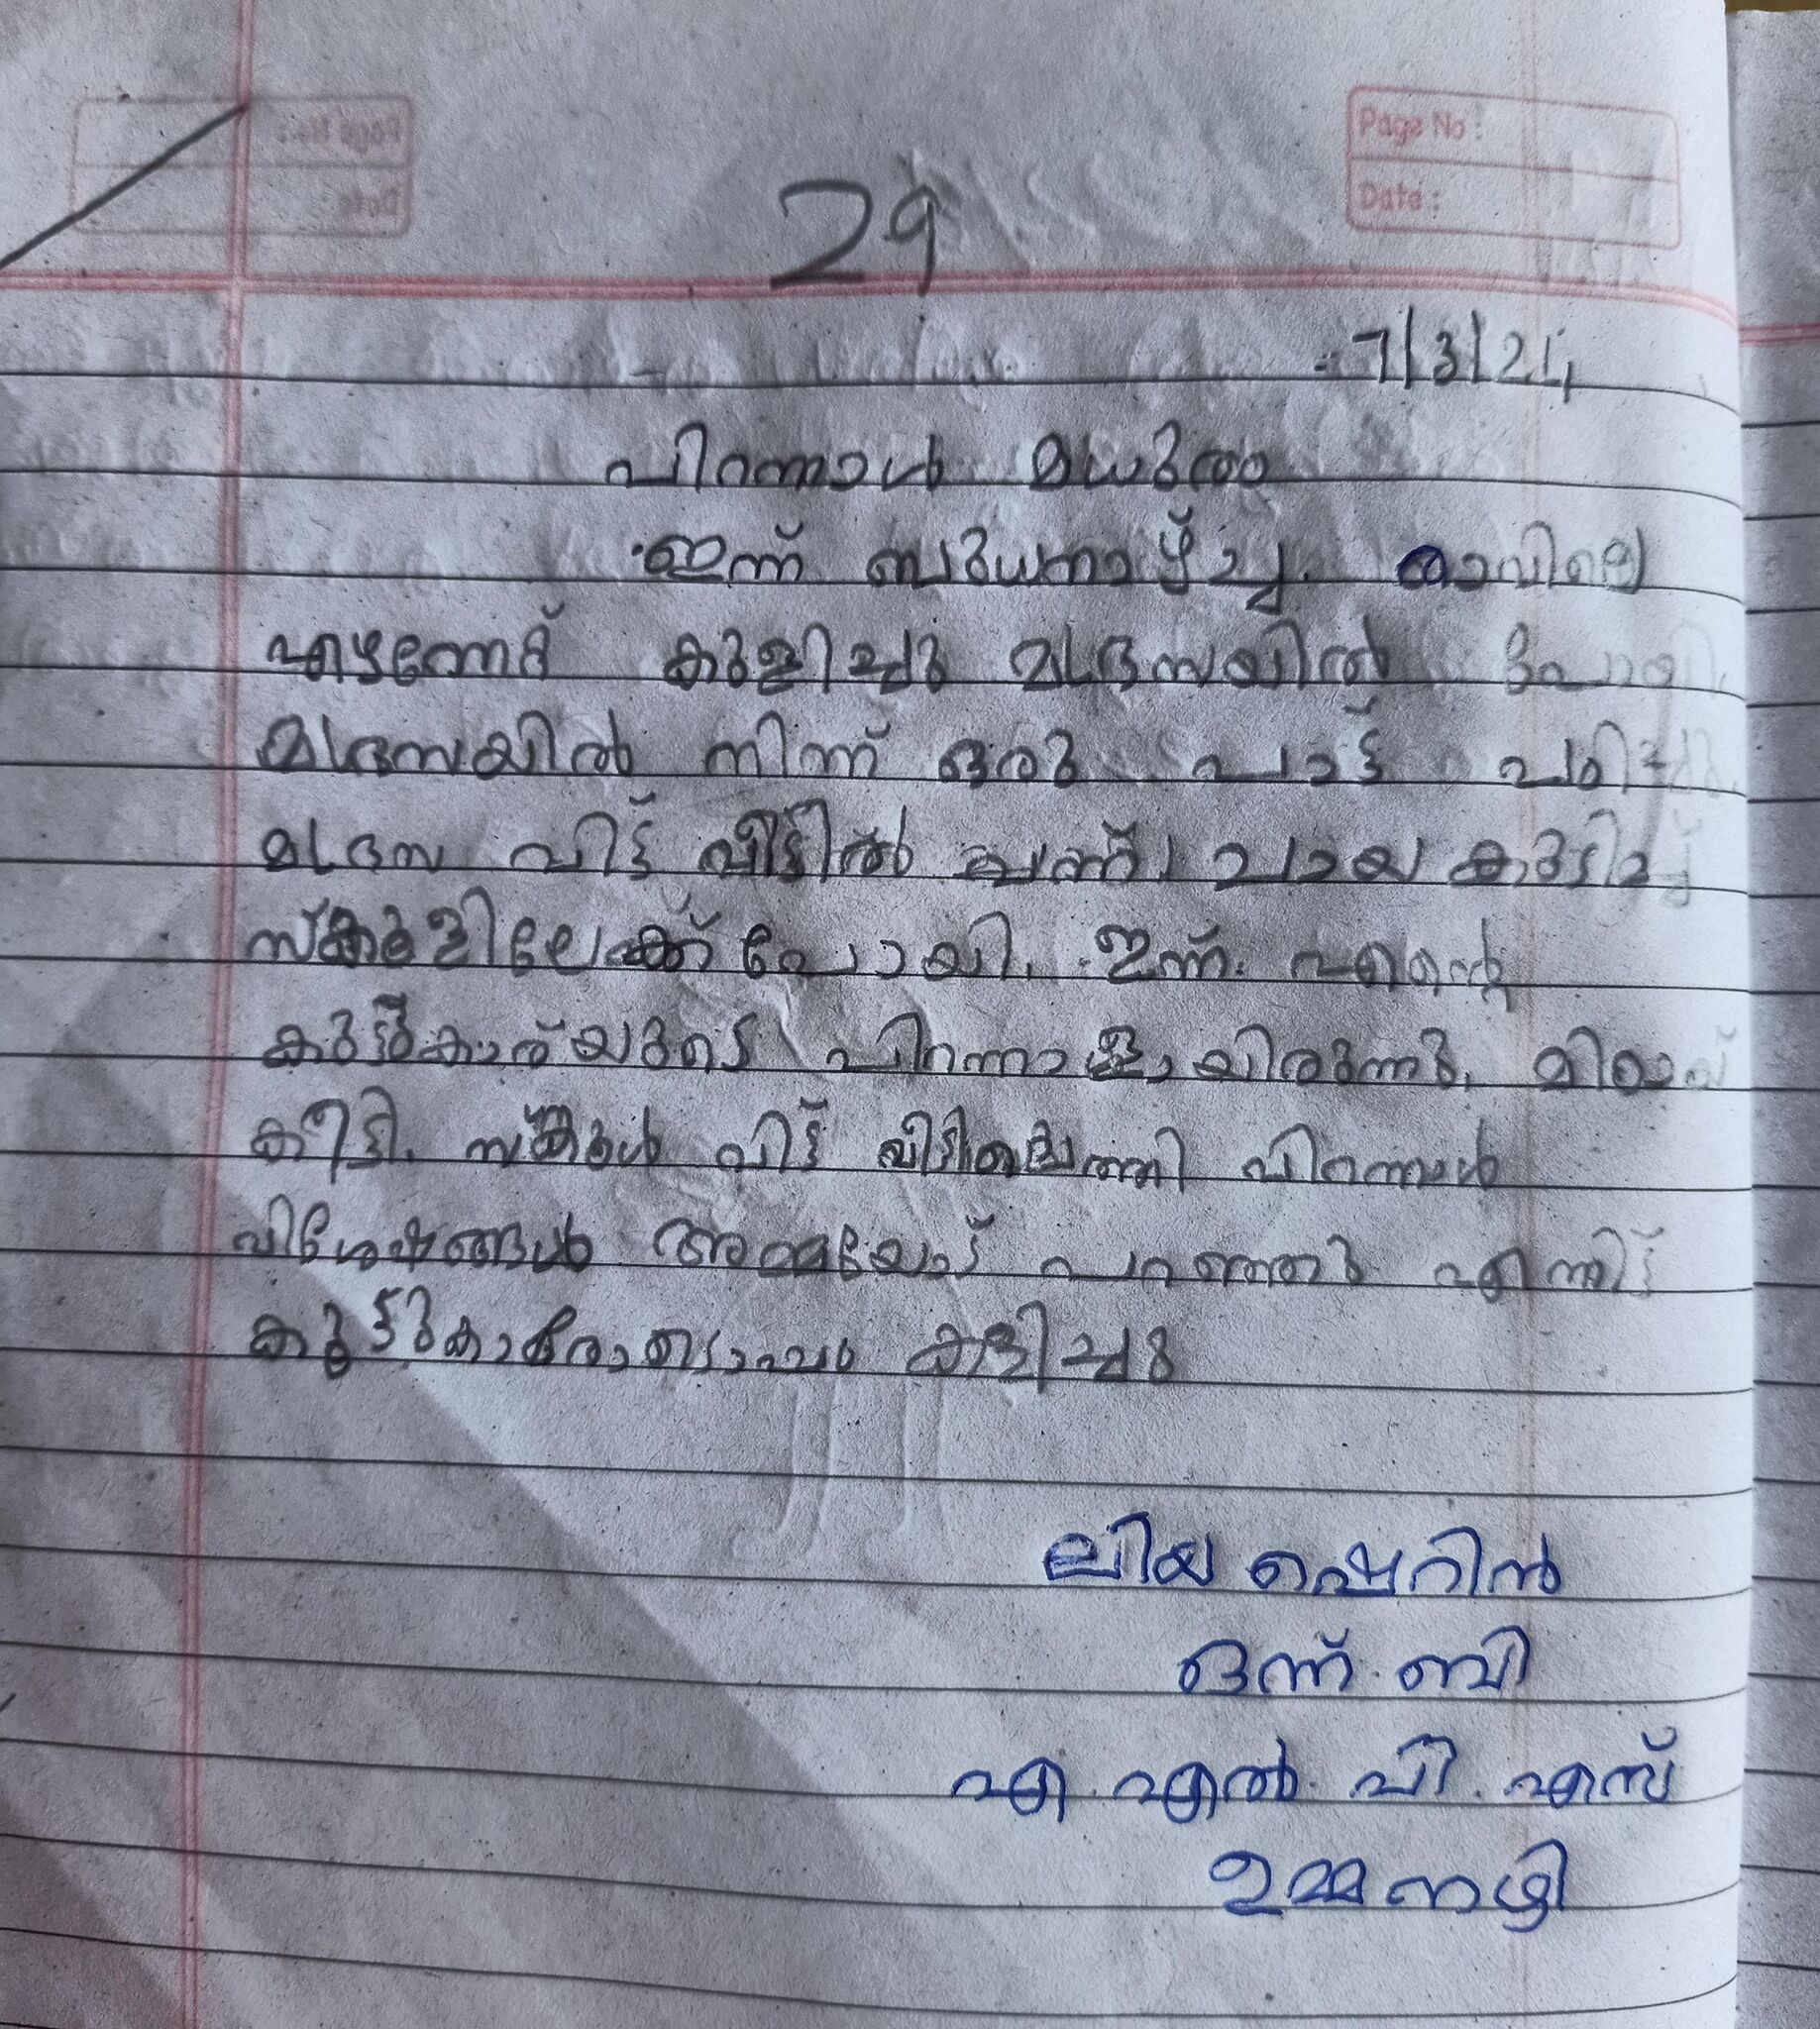 Page No :
Date :
29
7/3/24
പിറന്നാൾ മധുരം
ഇന്ന് ബുധനാഴ്ച്ച. രാവിലെ
എഴുന്നേറ്റ് കുളിച്ചു മദ്രസയിൽ പോയി.
മദ്രസയിൽ നിന്ന് ഒരു പാട്ട് പഠിച്ചു.
മദ്രസ വിട്ട് വീട്ടിൽ വന്ന് ചായ കുടിച്ച്
സ്കൂളിലേക്ക് പോയി. ഇന്ന് എന്റെ
പിറന്നാളായിരുന്നു. മിഠായി
കിട്ടി. വിട്ട് വീട്ടിലെത്തി പിറന്നാൾ
വിശേഷങ്ങൾ അമ്മയോട് പറഞ്ഞു എന്നിട്ട്
കൂട്ടുകാരോടൊപ്പം കളിച്ചു
ലിയ ഷെറിൻ
ഒന്ന് ബി
എ എൽ പി എസ്
ഉമ്മനഴി